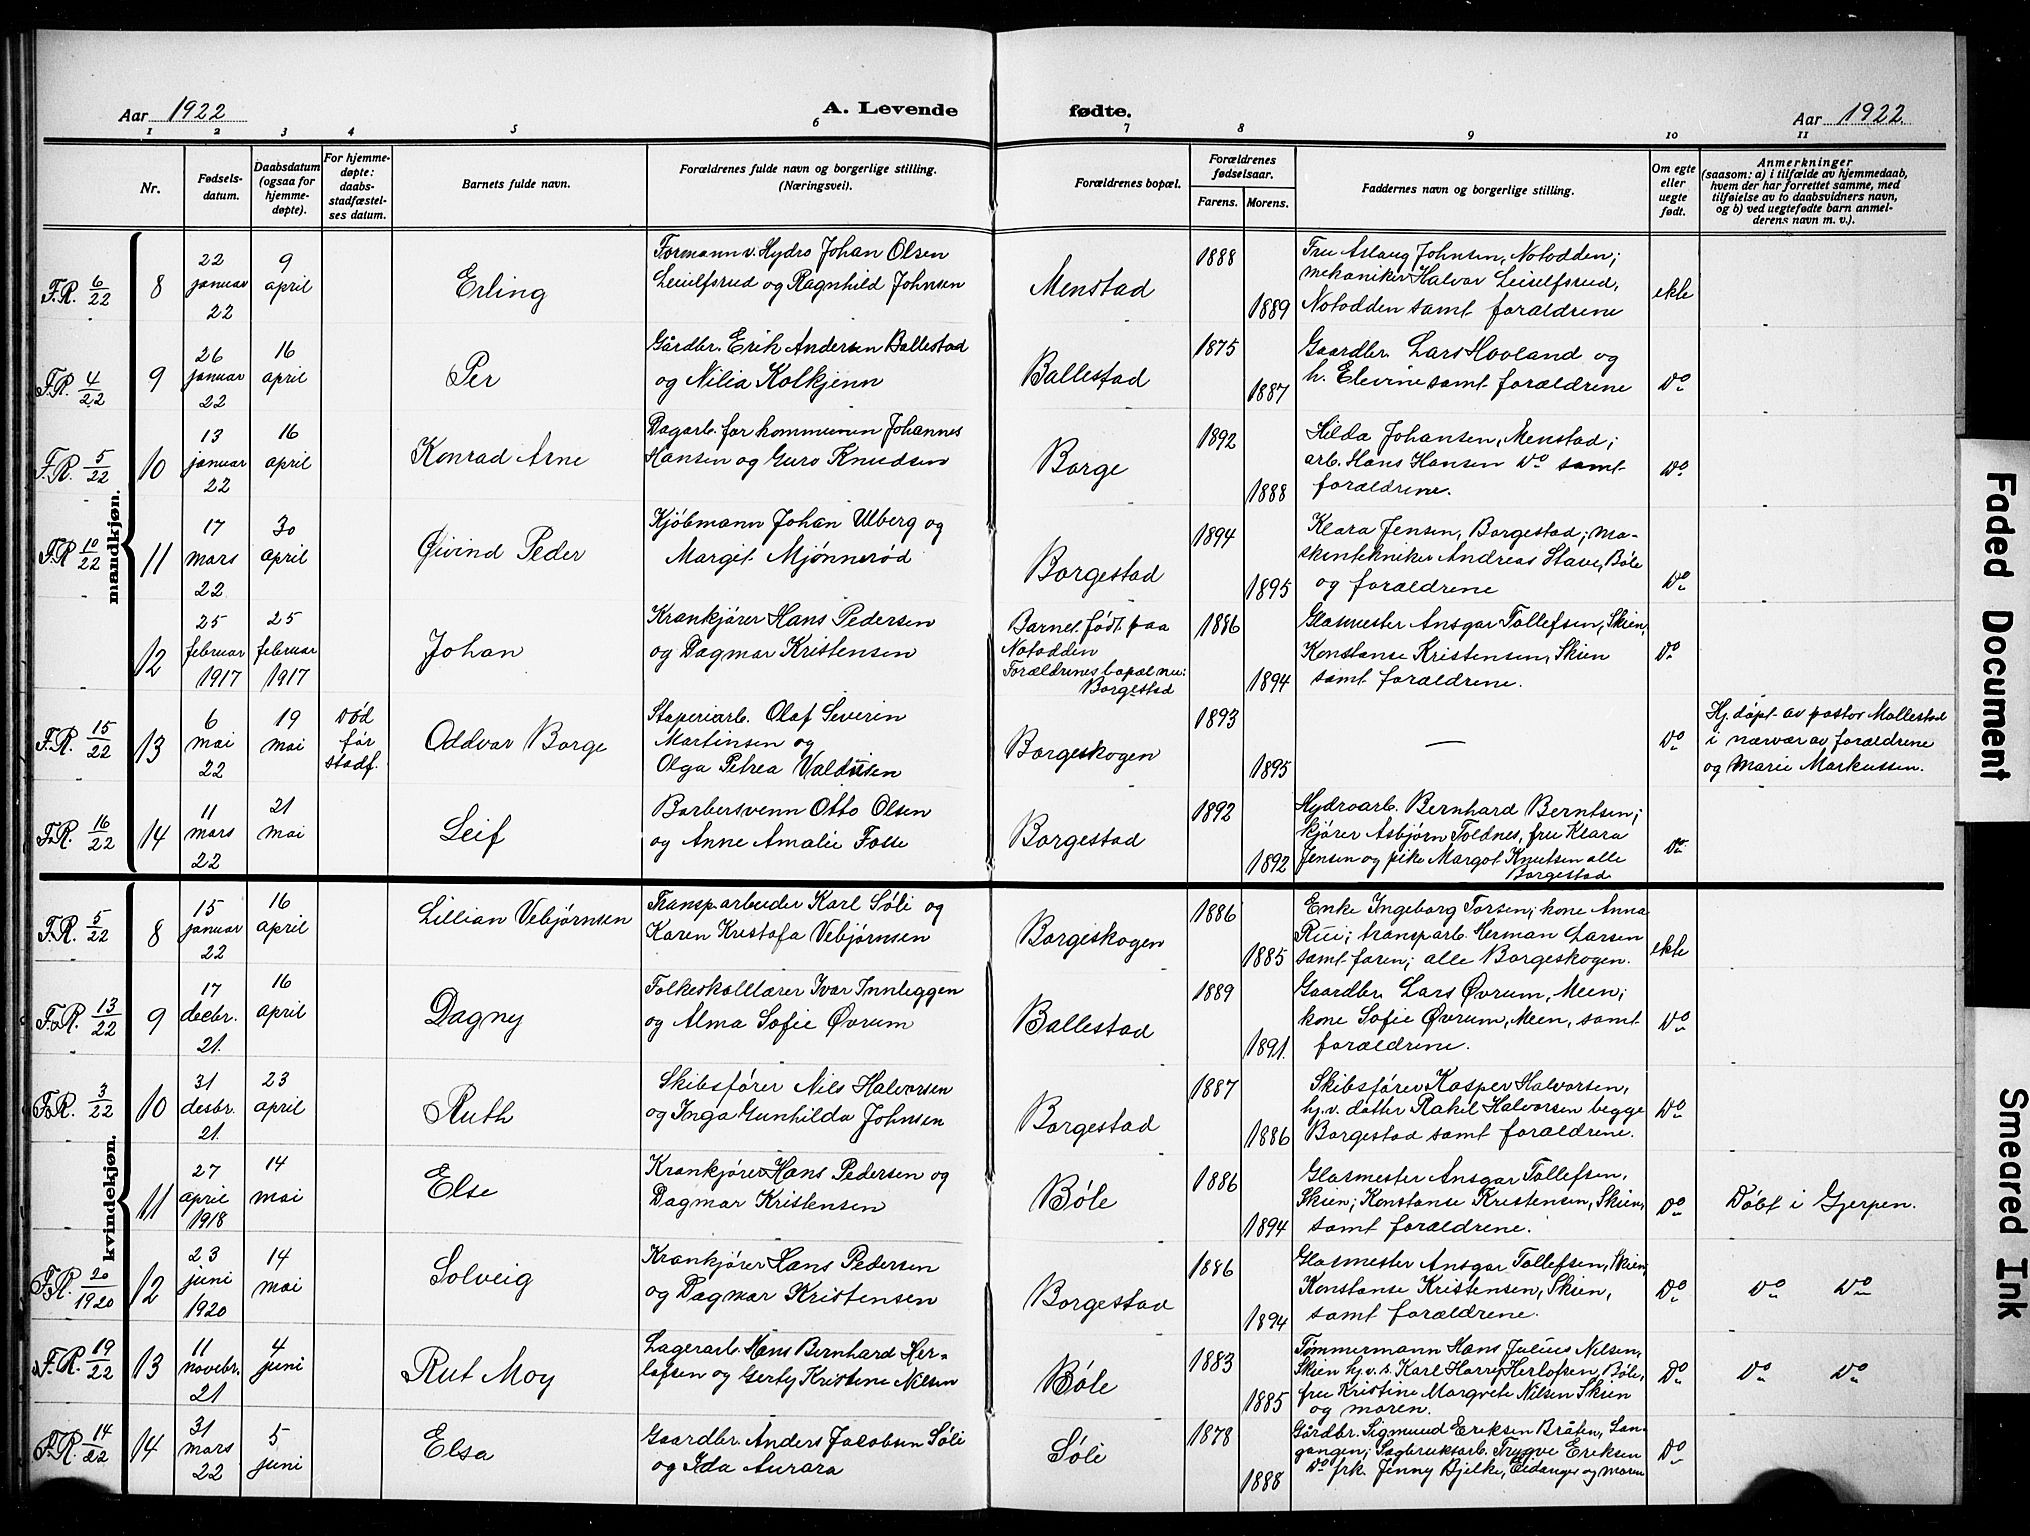 Aar 1922
A. Levende
fødte.
Aar 1922.
1 2 3 4 5 6 7 8 9 10 11
Nr.
Fødsels-
datum.
Daabsdatum
(ogsaa for
hjemme-
døpte).
For hjemme-
døpte:
daabs-
stadfæstel-
ses datum.
Barnets fulde navn.
Forældrenes fulde navn og borgerlige stilling.
(Næringsvei).
Forældrenes bopæl.
Forældrenes
fødselsaar.
Farens. Morens.
Faddernes navn og borgerlige stilling.
Om egte
eller
uegte
født.
Anmerkninger
(saasom: a) i tilfælde av hjemmedaab,
hvem der har forrettet samme, med
tilføielse av to daabsvidners navn,
og b) ved uegtefødte barn anmel-
derens navn m. v.).
mandkjøn.
F.R. 6/22
8
22
januar
22
9
april
Erling
Formann v. Hydro Johan Olsen
Leiulfsrud og Ragnhild Johnsen
Menstad
1888
1889
Fru Aslaug Johnsen, Notodden;
mekaniker Halvor Leiulfsrud,
Notodden samt forældrene
ekte
F.R. 4/22
9
26
januar
22
16
april
Per
Gårdbr. Erik Andersen Ballestad
og Nilia Kolkjenn
Ballestad
1875
1887
Gaardbr. Lars Hovland og
h. Elevine samt forældrene
Do
F.R. 5/22
10
13
januar
22
16
april
Konrad Arne
Dagarb. for kommunen Johannes
Hansen og Guro Knudsen
Borge
1892
1888
Hilda Johansen, Menstad;
arb. Hans Hansen Do samt
forældrene.
Do
F.R 10/22
11
17
mars
22
30
april
Øivind Peder
Kjøbmann Johan Ulberg og
Margit Mjønnerød
Borgestad
1894
1895
Klara Jensen, Borgestad; ma-
skintekniker Andreas Stave, Bøle
og forældrene
Do
12
25
februar
1917
25
februar
1917
Johan
Krankjører Hans Pedersen
og Dagmar Kristensen
Barnet født paa
Notodden
Forældrenes bopæl nu:
Borgestad
1886
1894
Glasmester Ansgar Tollefsen, Skien,
Konstanse Kristensen, Skien
samt forældrene.
Do
F.R. 15/22
13
6
mai
22
19
mai
død
før
stadf.
Oddvar Borge
Støperiarb. Olaf Severin
Martinsen og
Olga Petrea
Borgeskogen
1893
1895
—
Do
Hj. døpt av pastor Mollestad
i nærvær av forældrene
og Marie Markussen.
F.R. 16/22
14
11
mars
22
21
mai
Leif
Barbersvenn Otto Olsen
og Anne Amalie Fosse
Borgestad
1892
1892
Hydroarb. Bernhard Berntsen;
kjører Asbjørn Toldnes, fru Klara
Jensen og pike Margot Knutsen alle
Borgestad
Do
kvindekjøn.
F.R. 5/22
8
15
januar
22
16
april
Lillian Vebjørnsen
Transp.arbeider Karl Søli og
Karen Kristofa Vebjørnsen
Borgeskogen
1886
1885
Enke Ingeborg Torsen; kone Anna
Rui; transp.arb. Herman Larsen
samt faren; alle Borgeskogen.
ekte
F.R. 13/22
9
17
decbr.
21.
16
april
Dagny
Folkeskolelærer Ivar Innleggen
og Alma Sofie Øvrum
Ballestad
1889
1891.
Gaardbr. Lars Øvrum, Meen;
kone Sofie Øvrum, Meen, samt
forældrene.
Do
F.R. 3/22
10
31
desbr.
21.
23
april
Ruth
Skibsfører Nils Halvorsen
og Inga Gunhilda Johnsen
Borgestad
1887
1886
Skibsfører Kasper Halvorsen,
hj.v. datter Rakil Halvorsen begge
Borgestad samt forældrene.
Do
11
27
april
1918
14
mai
Else
Krankjører Hans Pedersen og
Dagmar Kristensen
Bøle
1886
1894
Glasmester Ansgar Tollefsen,
Skien; Konstanse Kristensen, Skien,
samt forældrene.
Do
Døbt i Gjerpen.
F.R. 20/1920
12
23
juni
1920
14
mai
Solveig
Krankjører Hans Pedersen
og Dagmar Kristensen
Borgestad
1886
1894
Glasmester Ansgar Tollefsen, Skien,
Konstanse Kristensen, Skien,
samt forældrene.
Do
Do Do
F.R. 19/22
13
11
novebr.
21
4
juni
Rut Moy
Lagerarb. Hans Bernhard Her-
lofsen og Gerty Kristine Nilsen
Bøle
1883
1885
Tømmermann Hans Julius Nilsen,
Skien hj.v.s. Karl Harry Herlofsen, Bøle,
fru Kristine Margrete Nilsen Skien
og moren.
Do
Do Do
F.R. 14/22
14
31
mars
22
5
juni
Elsa
Gaardbr. Anders Jacobsen Søli
og Ida Aurora
Søli
1878
1888
Gårdbr. Sigmund Eriksen Bråten, Lan-
gangen; Sagbruksarb. Trygve Eriksen
Do frk. Jenny Bjelke, Eidanger og moren
Do
Faded Document
Smeared Ink